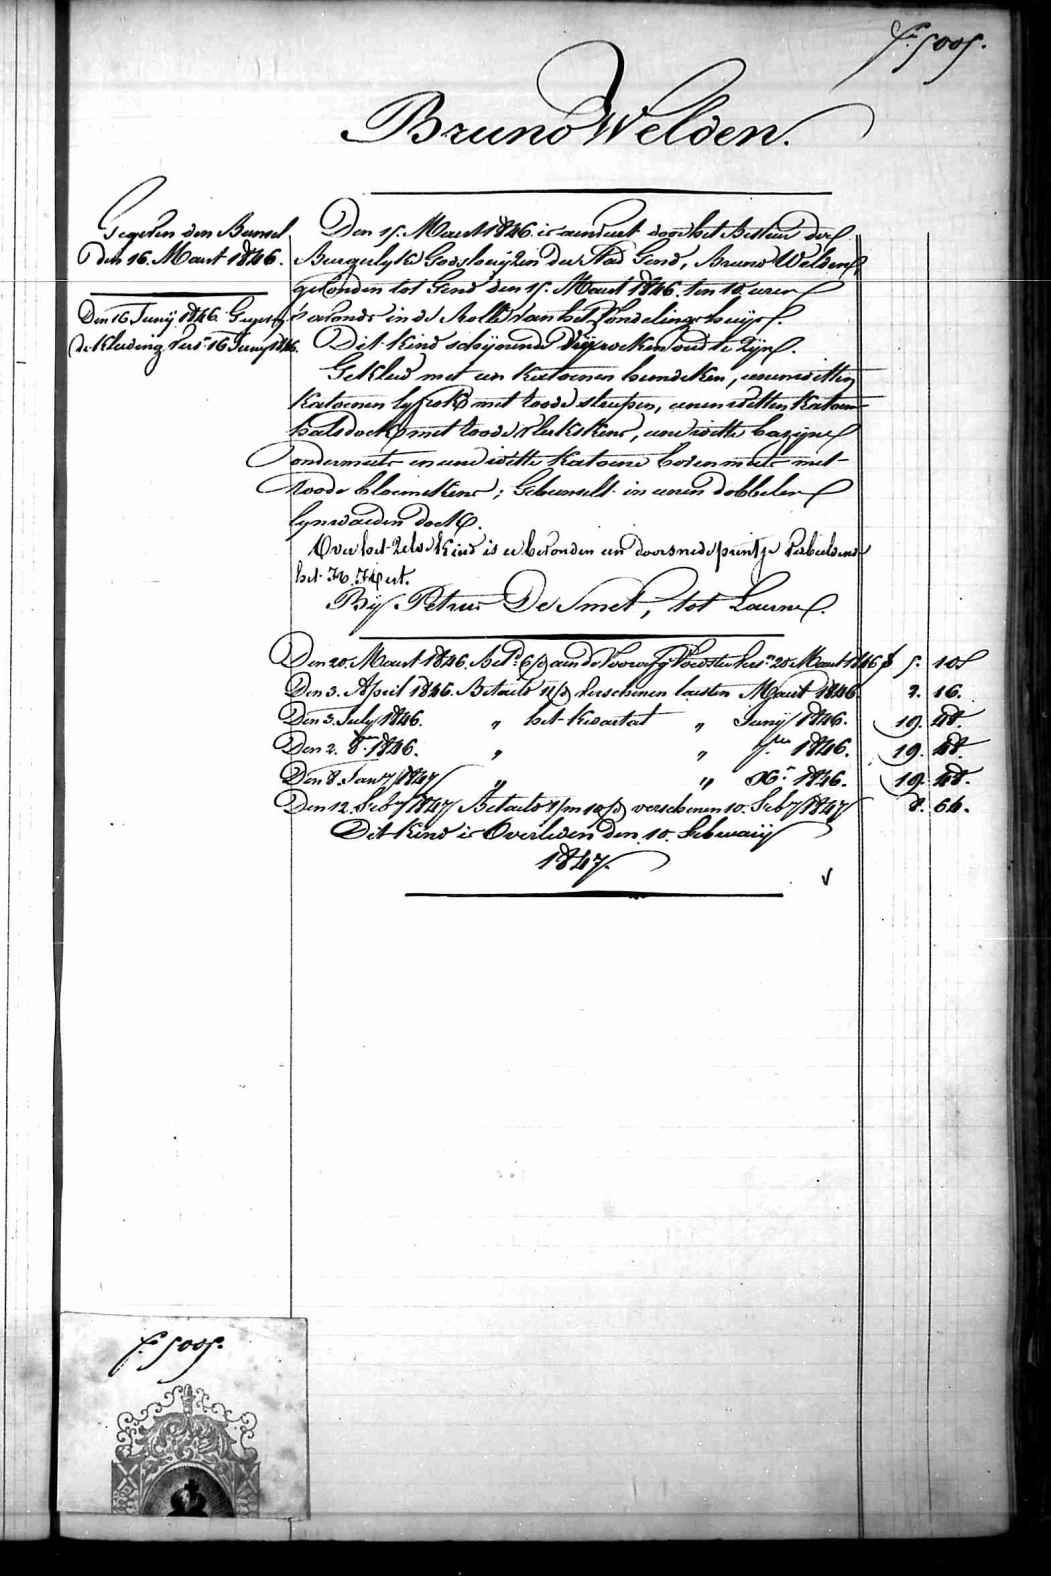 f.° 5005.
Bruno Welden.
Gegeven den Bunsel
den 16. Maart 1846.
Den 16 Junij 1846. Gegeven
de Kleding vers.n 16 Junij 1846.
Den 15. Maart 1846. is aenveert door het Bestier der
Burgerlyke Godshuijzen der Stad Gend, Bruno Welden
gevonden tot Gend den 15. Maart 1846. ten 10 uren
's avonds in de Rolle van het Vondelinghuijs.
Dit kind schynende Dry weken oud te Zijn.
Gekleed met een katoenen hemdeken, eenen witten
katoenen lyfrok met roode streepen, eenen witten katoen
halsdoek met roode vlekskens, eene witte bazijne
ondermuts en eene witte katoene bovenmuts met
roode bloemekens; Gebunselt in eenen dobbelen
lynwaeden doek.
Over het Zelve Kind is er bevonden een doorsnede printje Verbeeldende
het H. Hert.
Bij Petrus De Smet, tot Laerne.
Den 20. Maart 1846. Bet.d 6/d aen de Voorafg. Voedster vers.n 20 Maart 1846 f 5. 10
Den 3. April 1846. Betaeld 11/d verschenen laesten Maart 1846. 2. 16.
Den 3. July 1846. „ het kwartael „ Junij 1846. 19. 48.
Den 2. 8.bre 1846. „ „ 7.bre 1846. 19. 48.
Den 8. Jan.y 1847 „ „ X.r 1846. 19. 48.
Den 12. Feb.y 1847 Betaeld 1/m 10/d verschenen 10. Feb.y 1847 8. 64.
Dit kind is Overleden den 10. Februarij
1847.
f.° 5005.